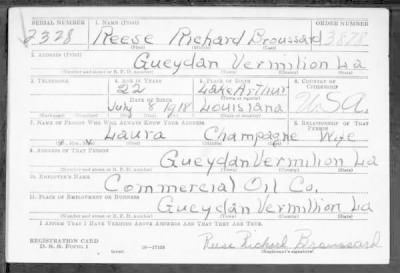 SERIAL NUMBER 1. NAME (Print) ORDER NUMBER
2328 Reese Richard Broussard 3878
(First) (Middle) (Last)
2. ADDRESS (Print)
Gueydan Vermilion La
(Number and street or R. F. D. number) (Town) (County) (State)
3. TELEPHONE 4. AGE IN YEARS 5. PLACE OF BIRTH 6. COUNTRY OF CITIZENSHIP
22 Lake Arthur
DATE OF BIRTH (Town or county)
July 8 1918 Louisiana U.S.A.
(Exchange) (Number) (Mo.) (Day) (Yr.) (State or country)
7. NAME OF PERSON WHO WILL ALWAYS KNOW YOUR ADDRESS 8. RELATIONSHIP OF THAT PERSON
Laura Champagne Wife
(Mr., Mrs., Miss) (First) (Middle) (Last)
9. ADDRESS OF THAT PERSON
Gueydan Vermilion La
(Number and street or R. F. D. number) (Town) (County) (State)
10. EMPLOYER'S NAME
Commercial Oil Co.
11. PLACE OF EMPLOYMENT OR BUSINESS
Gueydan Vermilion La
(Number and street or R. F. D. number) (Town) (County) (State)
I AFFIRM THAT I HAVE VERIFIED ABOVE ANSWERS AND THAT THEY ARE TRUE.
REGISTRATION CARD
D. S. S. FORM 1 Reese Richard Broussard
(over) 16-17105 (Registrant's signature)